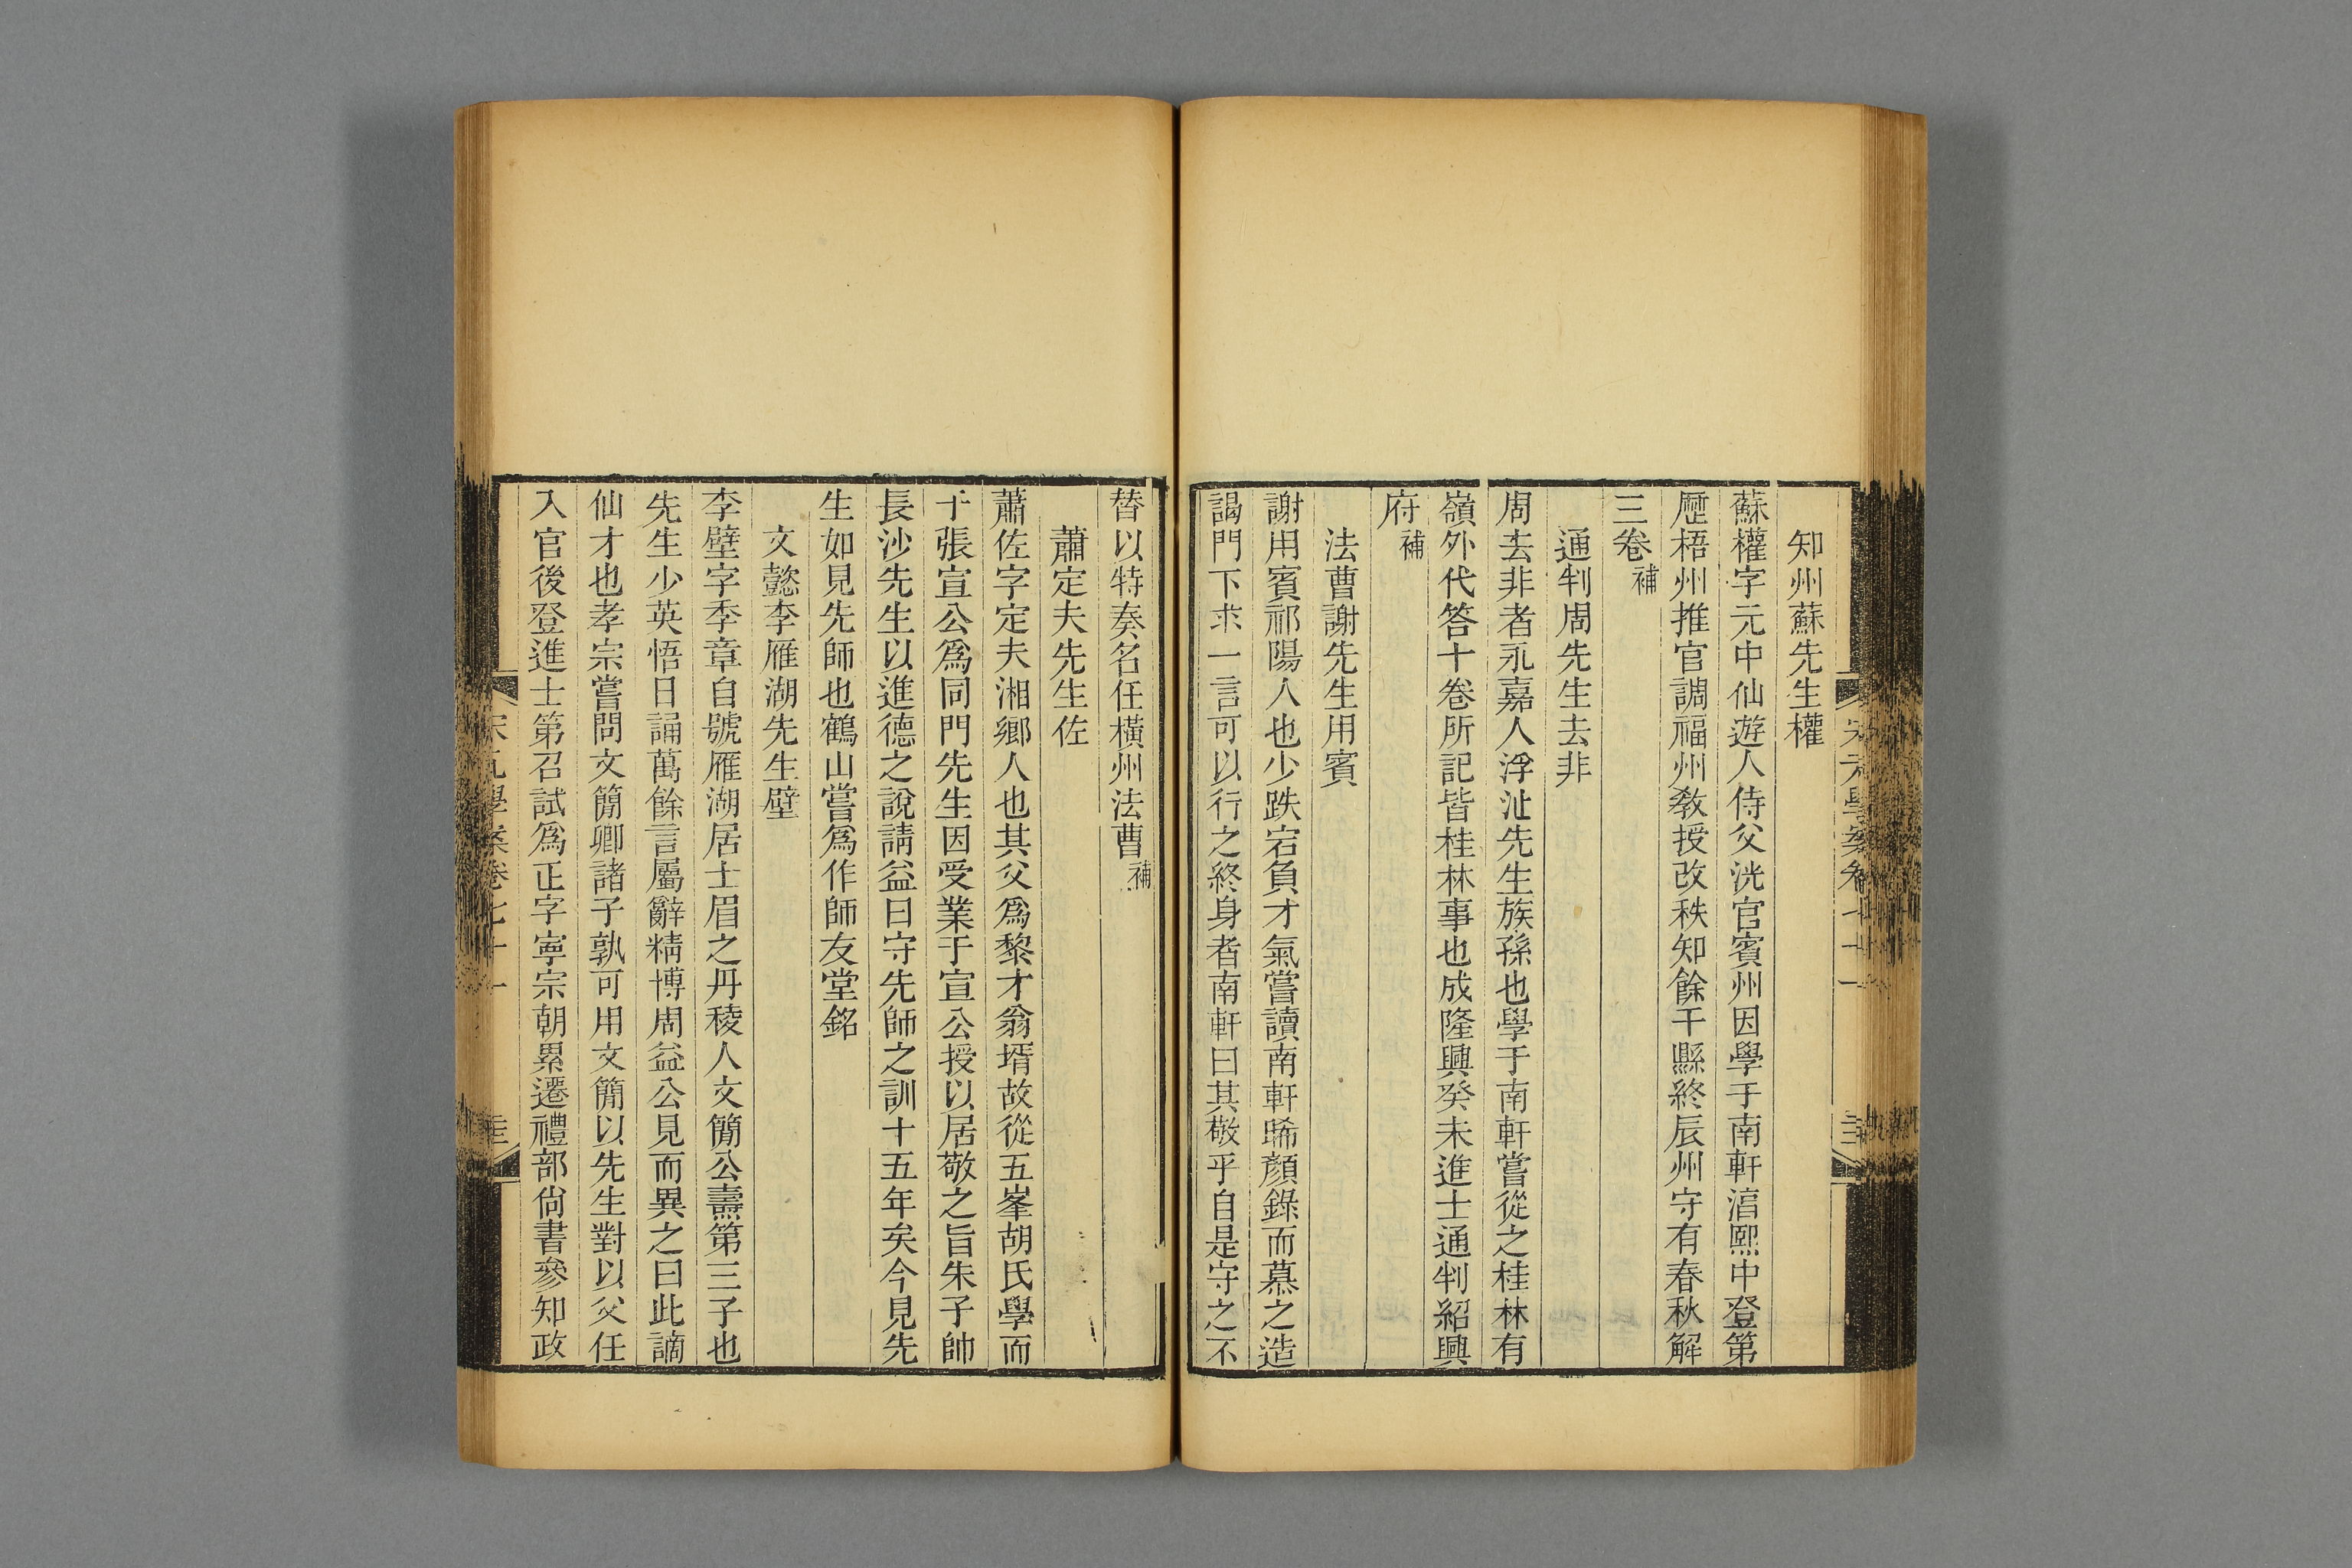 知州蘇先生權
蘇權字元中仙遊人侍父洸官賓州因學于南軒淳熙中登第
歷梧州推官調福州敎授改秩知餘干縣終辰州守有春秋解
三卷補
通判周先生去非
周去非者永嘉人浮沚先生族孫也學于南軒嘗從之桂林有
嶺外代答十卷所記皆桂林事也成隆興癸未進士通判紹興
府補
法曹謝先生用賓
謝用賓祁陽人也少跌宕負才氣嘗讀南軒晞顏錄而慕之造
謁門下求一言可以行之終身者南軒曰其敬乎自是守之不
替以特奏名任橫州法曹補
蕭定夫先生佐
蕭佐字定夫湘鄉人也其父爲黎才翁壻故從五峯胡氏學而
于張宣公爲同門先生因受業于宣公授以居敬之旨朱子帥
長沙先生以進德之說請益曰守先師之訓十五年矣今見先
生如見先師也鶴山嘗爲作師友堂銘
文懿李雁湖先生壁
李壁字季章自號雁湖居士眉之丹稜人文簡公燾第三子也
先生少英悟日誦萬餘言屬辭精博周益公見而異之曰此謫
仙才也孝宗嘗問文簡卿諸子孰可用文簡以先生對以父任
入官後登進士第召試爲正字寧宗朝累遷禮部尙書參知政
學案卷七十一